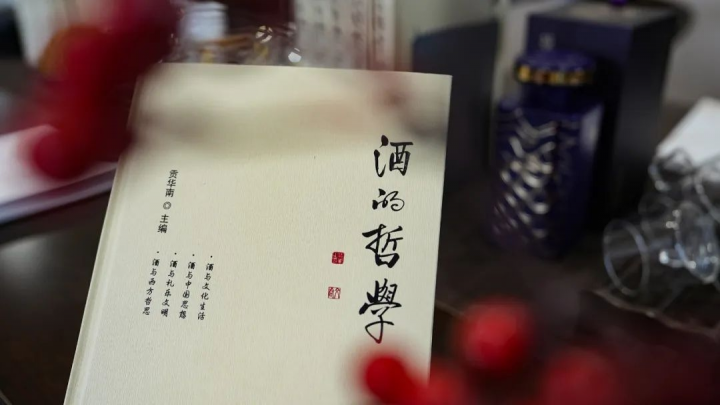 酒的哲學
·酒与文化生活
·酒与中国思想
·酒与礼乐文明
·酒与西方哲思
贡华南◎主编